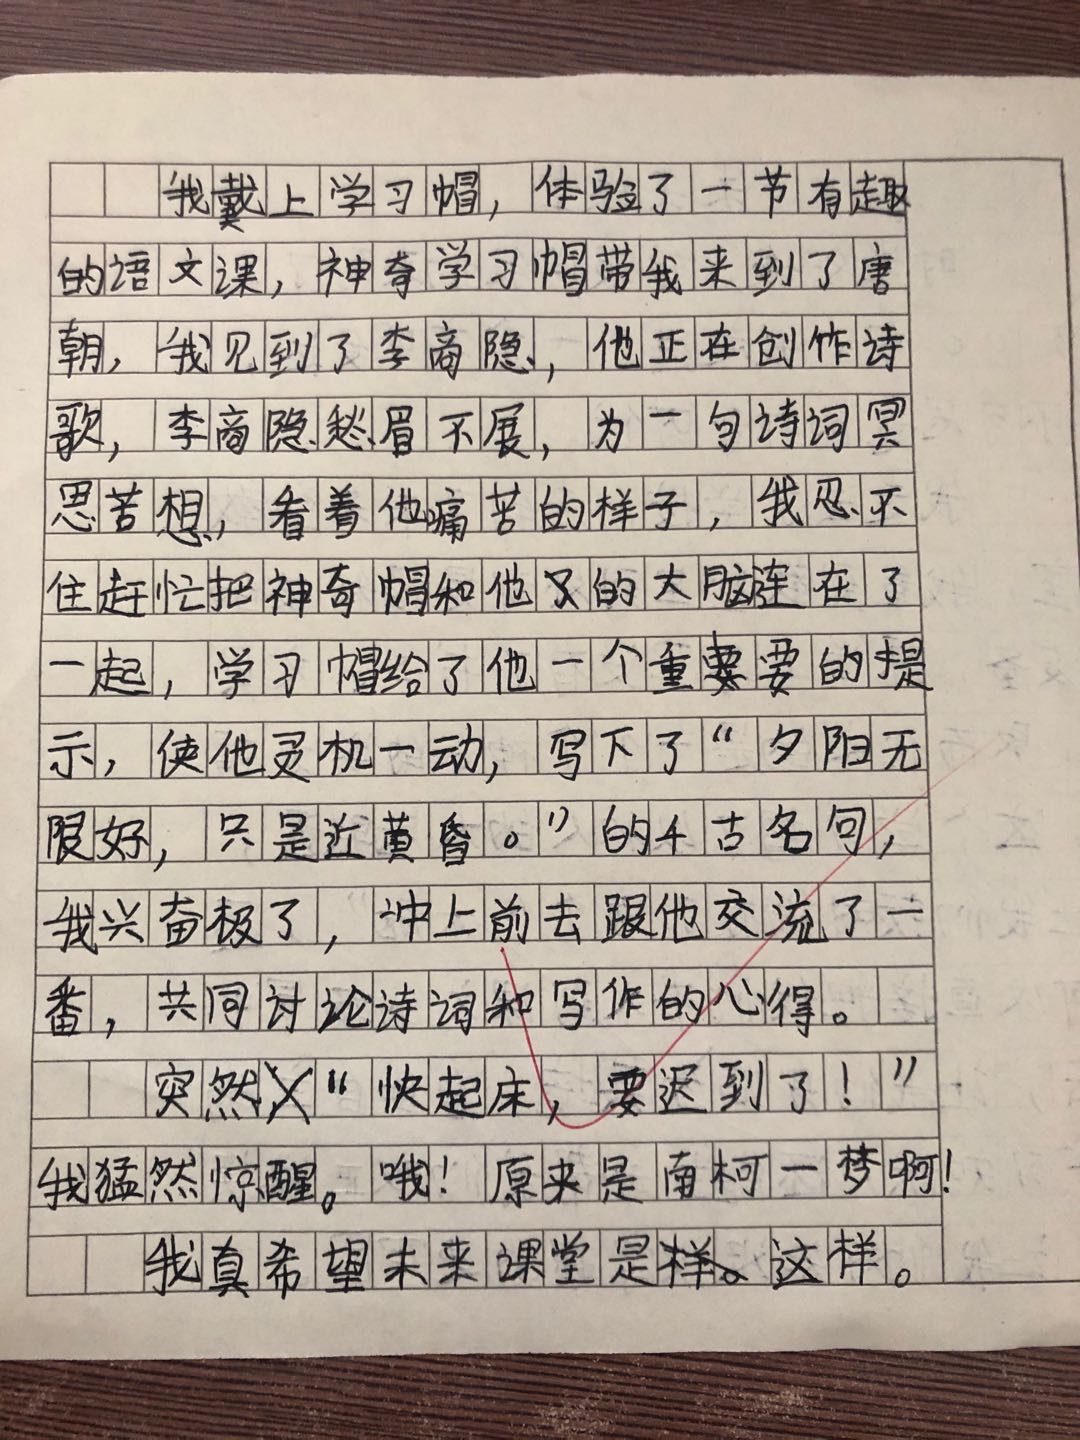 我戴上学习帽，体验了一节有趣
的语文课，神奇学习帽带我来到了唐
朝，我见到了李商隐，他正在创作诗
歌，李商隐愁眉不展，为一句诗词冥
思苦想，看着他痛苦的样子，我忍不
住赶忙把神奇帽和他的大脑连在了
一起，学习帽给了他一个重要的提
示，使他灵机一动，写下了“夕阳无
限好，只是近黄昏。”的千古名句，
我兴奋极了，冲上前去跟他交流了一
番，共同讨论诗词和写作的心得。
突然“快起床，要迟到了！”
我猛然惊醒。哦！原来是南柯一梦啊！
我真希望未来课堂是这样。